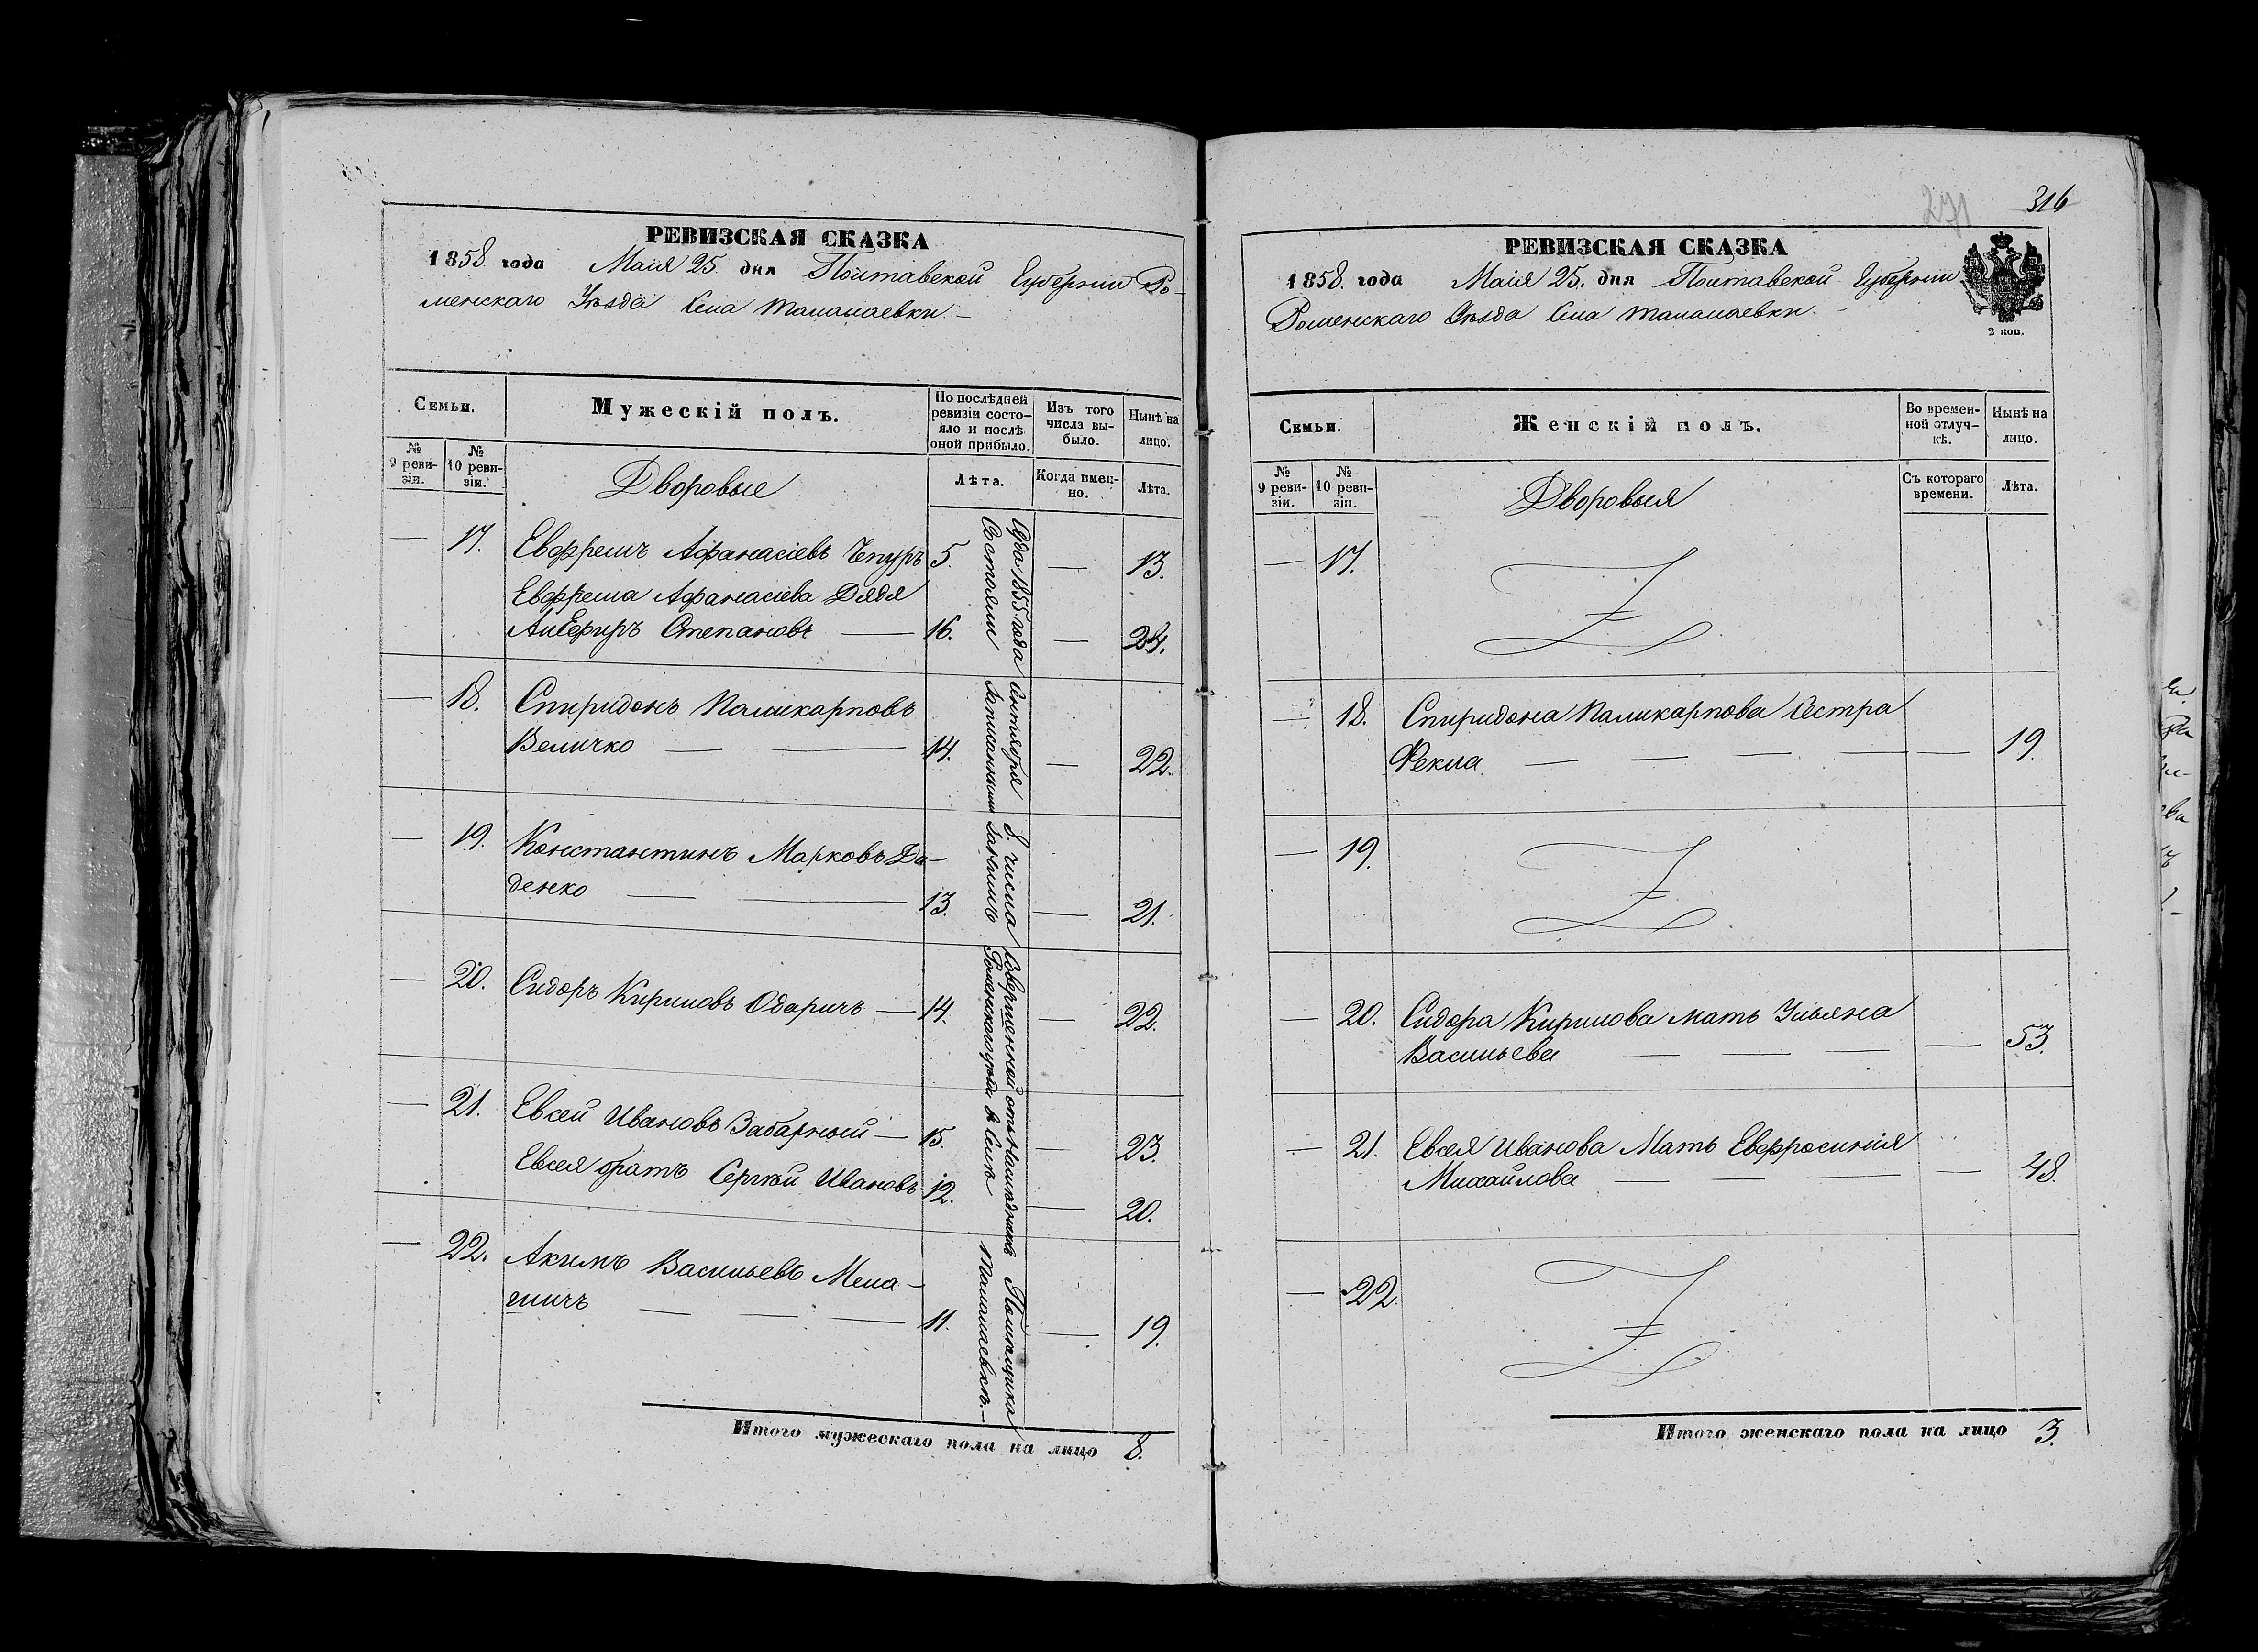 РЕВИЗСКАЯ СКАЗКА
1858. года Маія 25. дня Полтавской Губерніи Ро-
менскаго Уѣзда Села Талалаевки. –
Семьи.
Мужескій полъ.
По послѣдней ревизіи состояло и послѣ оной прибыло.
Изъ того числа выбыло.
Нынѣ на лицо.
№ 9 ревизіи.
№ 10 ревизіи.
Дворовые
Лѣта.
Когда именно.
Лѣта.
— 17. Евфремъ Афанасіевъ Чепуръ 5. — 13.
Евфрема Афанасіева Дядя
Степановъ — 16. — 24.
— 18. Спиридонъ Паликарповъ
Величко — — 14. — 22.
— 19. Константинъ Марковъ Да-
денко — — 13. — 21.
— 20. Сидоръ Кириловъ Одаричъ — 14. — 22.
— 21. Евсей Ивановъ Забарный — 15. — 23.
Евсея братъ Сергѣй Ивановъ 12. — 20.
— 22. Акимъ Васильевъ Мела-
— — — 11. — 19.
1855. года Октября 8. числа Совершенной отъ Помѣщика
Состояли Записанными за нимъ Роменскаго уѣзда въ Селѣ Талалаевкѣ. –
Итого мужескаго пола на лицо 8.
271
316
РЕВИЗСКАЯ СКАЗКА
1858. года Маія 25. дня Полтавской Губерніи
Роменскаго Уѣзда Села Талалаевки. –
2 коп.
Семьи.
Женскій полъ.
Во временной отлучкѣ.
Нынѣ на лицо.
№ 9 ревизіи.
№ 10 ревизіи.
Дворовыя
Съ котораго времени.
Лѣта.
— 17.
— 18. Спиридона Паликарпова Сестра
Фекла — — — — 19.
— 19.
— 20. Сидора Кирилова мать Ульяна
Васильева — — — — 53.
— 21. Евсея Иванова Мать Евфросинія
Михайлова — — — — 48.
— 22.
Итого женскаго пола на лицо 3.